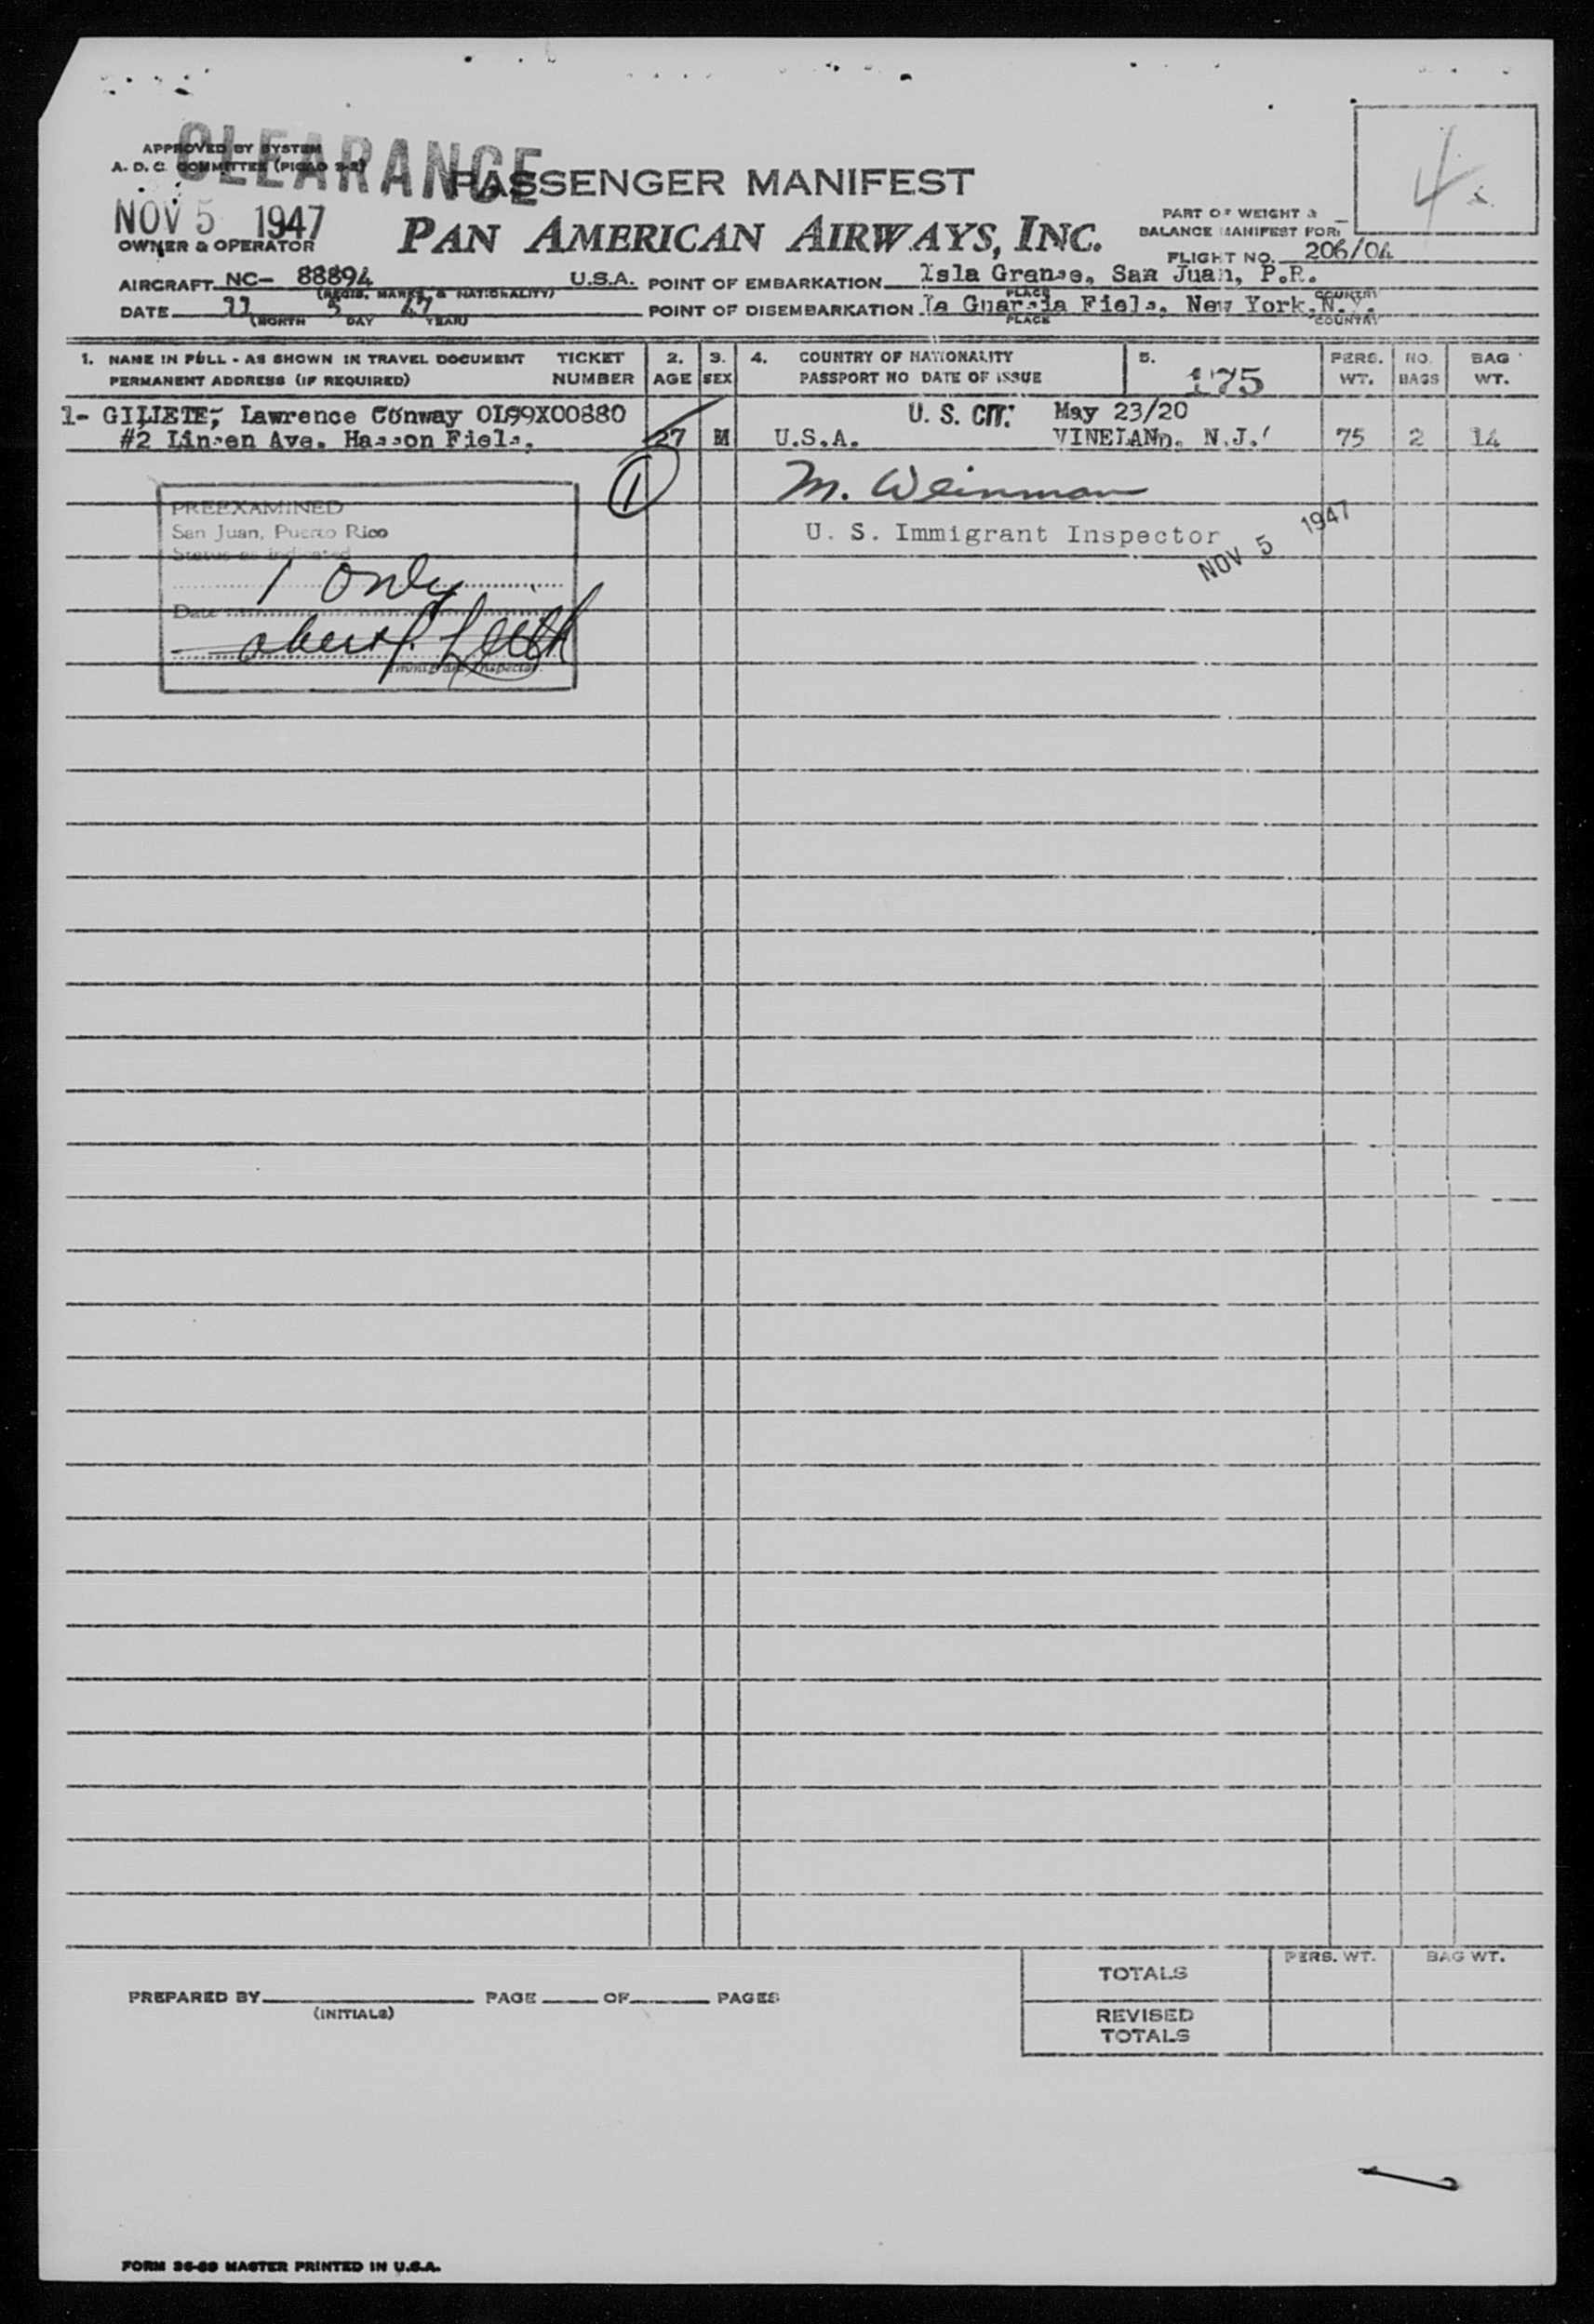 CLEARANCE
APPROVED BY SYSTEM
A. D. C. COMMITTEE
PASSENGER MANIFEST
NOV 5 1947
PAN AMERICAN AIRWAYS, INC.
OWNER & OPERATOR
PART OF WEIGHT &
BALANCE MANIFEST FOR:
FLIGHT NO. 206/04
AIRCRAFT NC- 88894 U.S.A. POINT OF EMBARKATION Isla Grande, San Juan, P.R.
(REGIS. MARKS & NATIONALITY) PLACE COUNTRY
DATE 11 5 47 POINT OF DISEMBARKATION La Guardia Field, New York, N.Y.
(MONTH DAY YEAR) PLACE COUNTRY
1. NAME IN FULL - AS SHOWN IN TRAVEL DOCUMENT TICKET 2. 3. 4. COUNTRY OF NATIONALITY 5. PERS. NO. BAG
PERMANENT ADDRESS (IF REQUIRED) NUMBER AGE SEX PASSPORT NO DATE OF ISSUE 175 WT. BAGS WT.
1- GILLETE, Lawrence Conway U. S. CIT. May 23/20
#2 Ave. Field, 27 M U.S.A. VINELAND, N.J. 75 2 14
1
M. Weinman
U. S. Immigrant Inspector
NOV 5 1947
PREEXAMINED
San Juan, Puerto Rico
Status as indicated
1 only
Date
Immigrant Inspector
TOTALS PERS. WT. BAG WT.
PREPARED BY PAGE OF PAGES
(INITIALS)
REVISED
TOTALS
FORM MASTER PRINTED IN U.S.A.